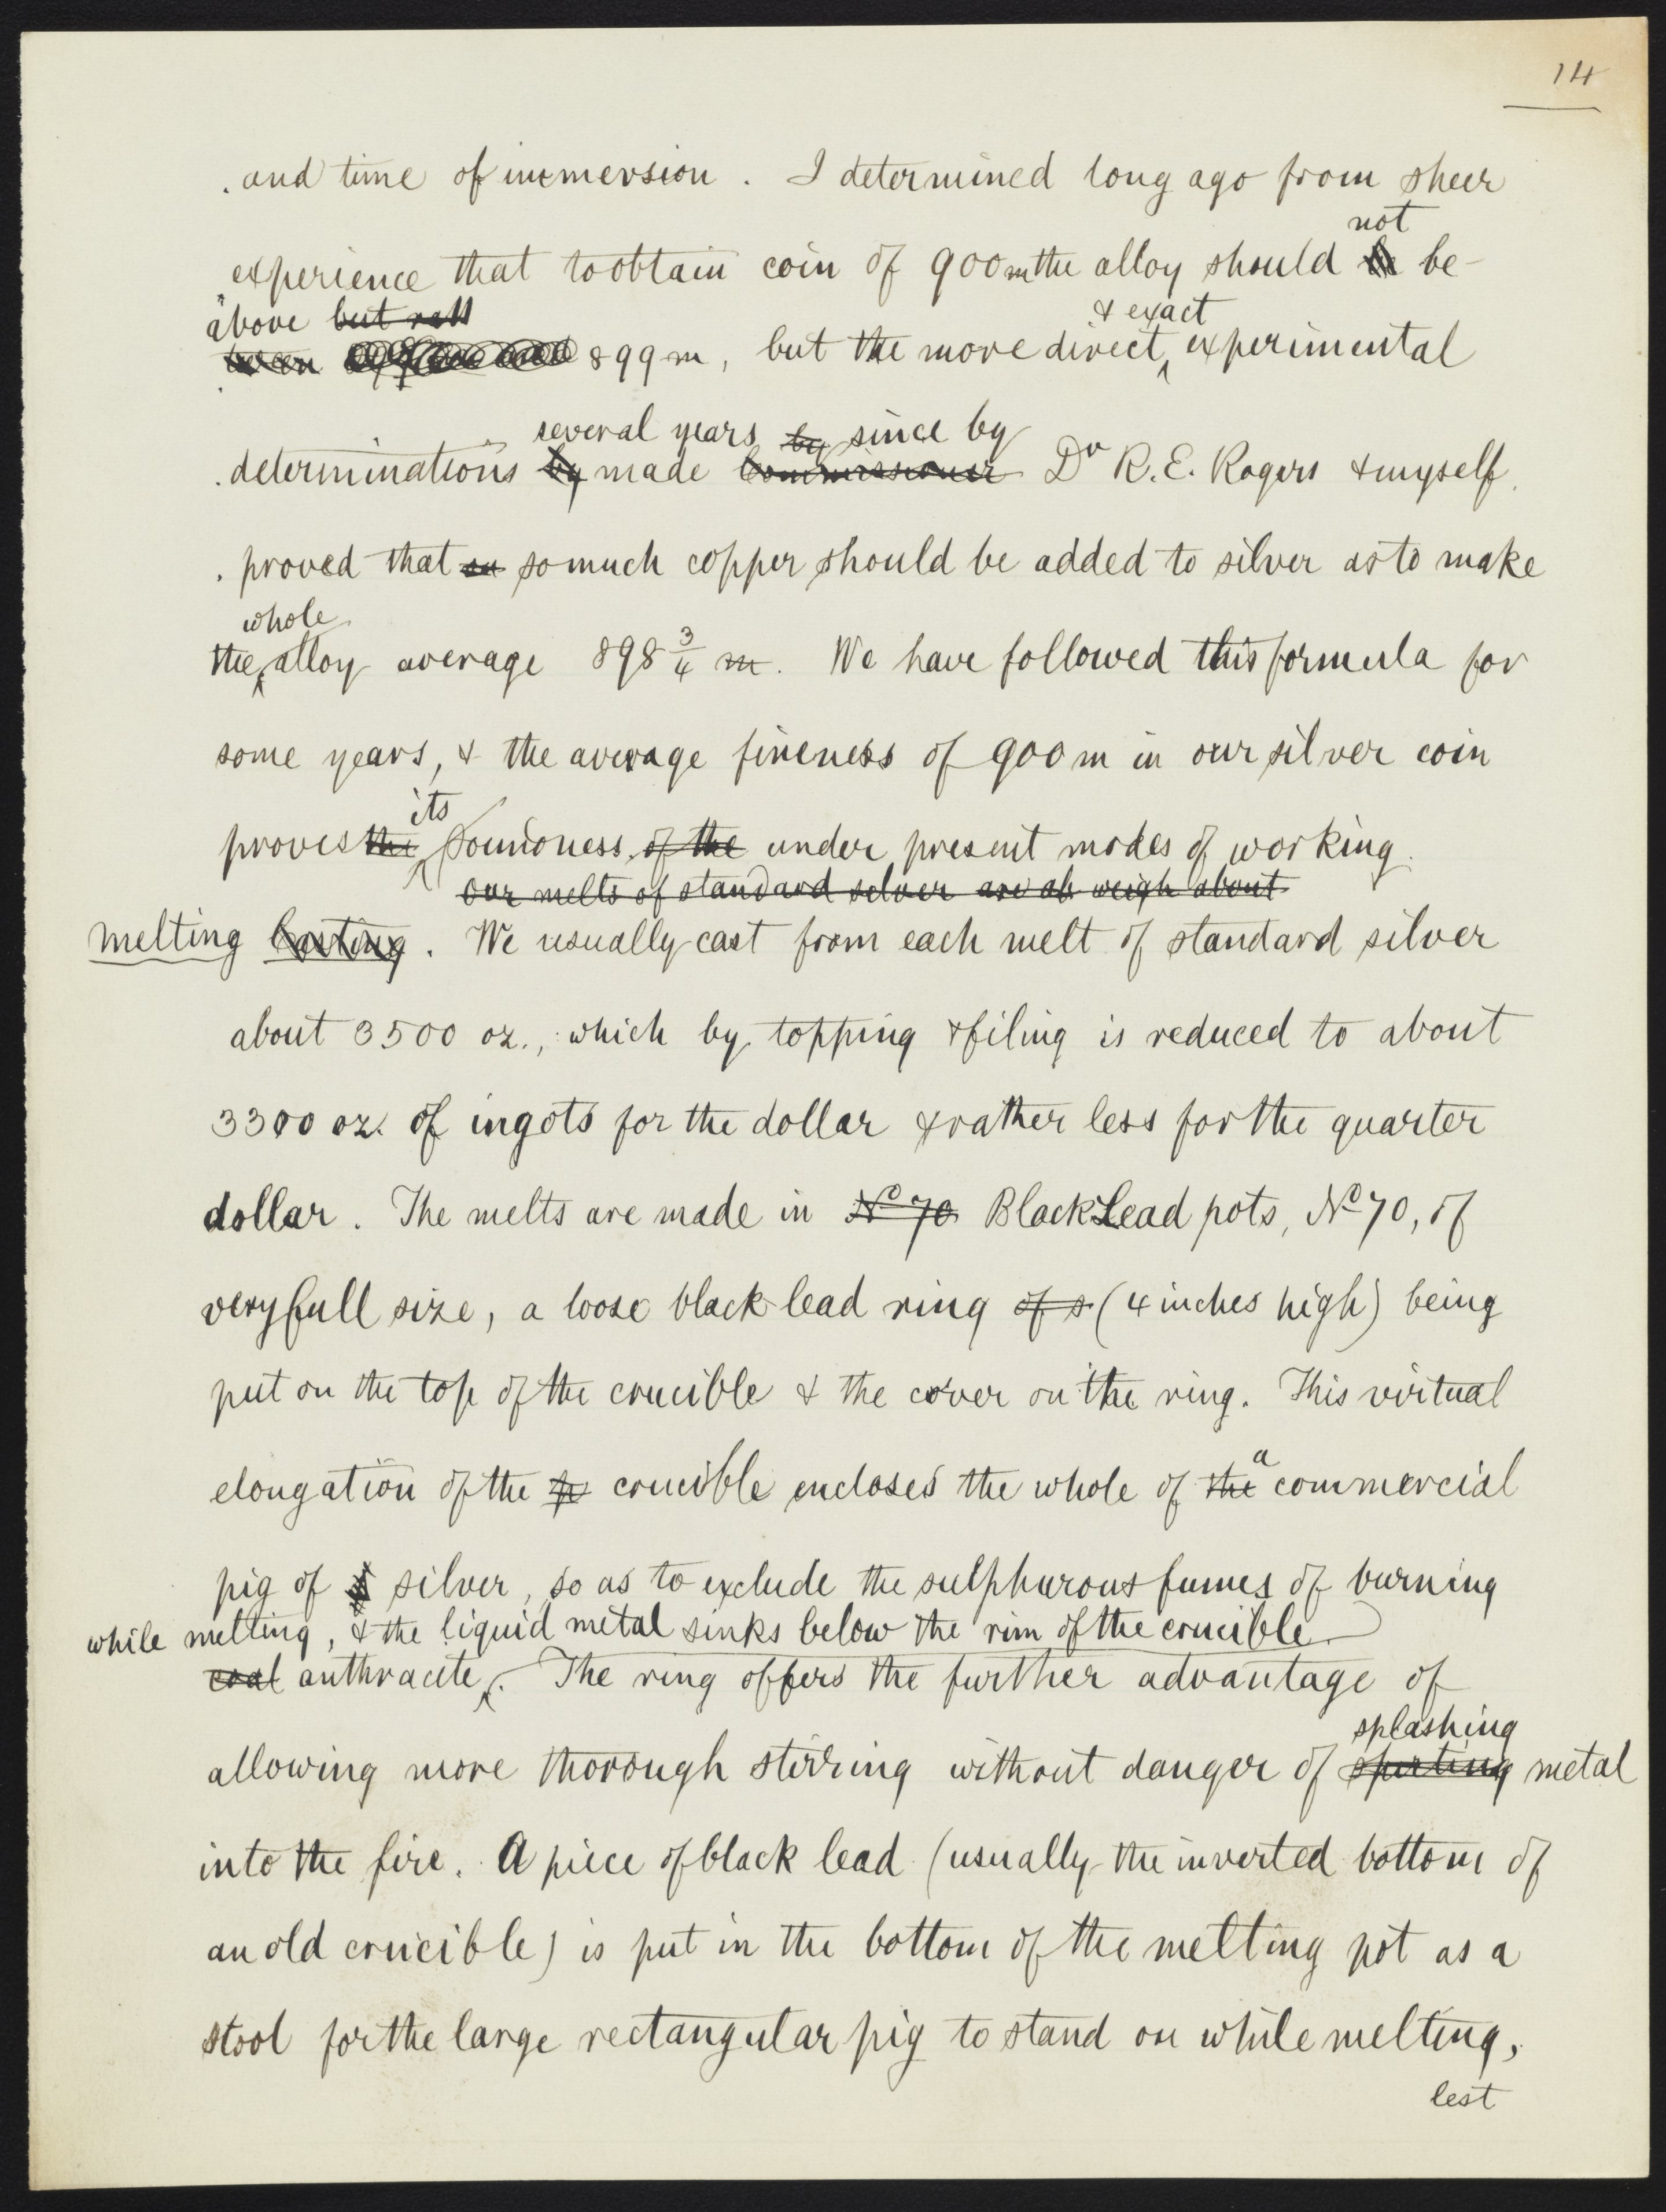 14
and time of immersion. I determined long ago from sheer
not
experience that to obtain coin of 900m the alloy should be be-
above but rath
tween 899m, but the more direct & exact experimental
several years by since by
determinations by made Commissioner Dr R. E. Rogers & myself
proved that so so much copper should be added to silver as to make
whole
the alloy average 898 3/4 m. We have followed this formula for
some years, & the average fineness of 900 m in our silver coin
its
proves the soundness of the under present modes of working.
Our melts of standard silver are ab weigh about
melting Casting. We usually cast from each melt of standard silver
about 3500 oz., which by topping & filing is reduced to about
3300 oz. of ingots for the dollar & rather less for the quarter
dollar. The melts are made in No 70 Black Lead pots, No 70, of
very full size, a loose black lead ring of s (4 inches high) being
put on the top of the crucible & the cover on the ring. This virtual
a
elongation of the crucible encloses the whole of the commercial
pig of silver, so as to exclude the sulphurous fumes of burning
while melting, & the liquid metal sinks below the rim of the crucible
coal anthracite. The ring offers the further advantage of
splashing
allowing more thorough stirring without danger of spirting metal
into the fire. A piece of black lead (usually the inverted bottom of
an old crucible) is put in the bottom of the melting pot as a
stool for the large rectangular pig to stand on while melting,
lest